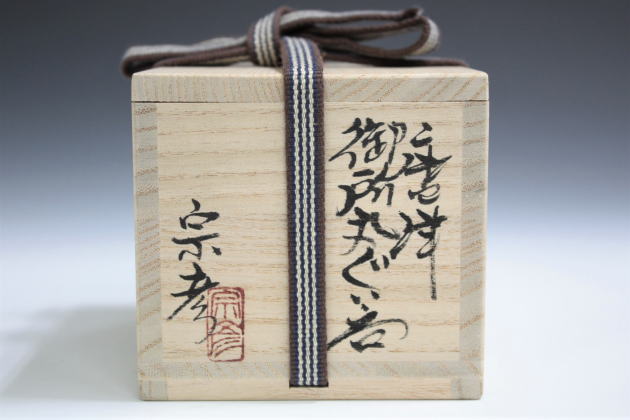 唐津
御所丸ぐい呑
宗彦
宗彦